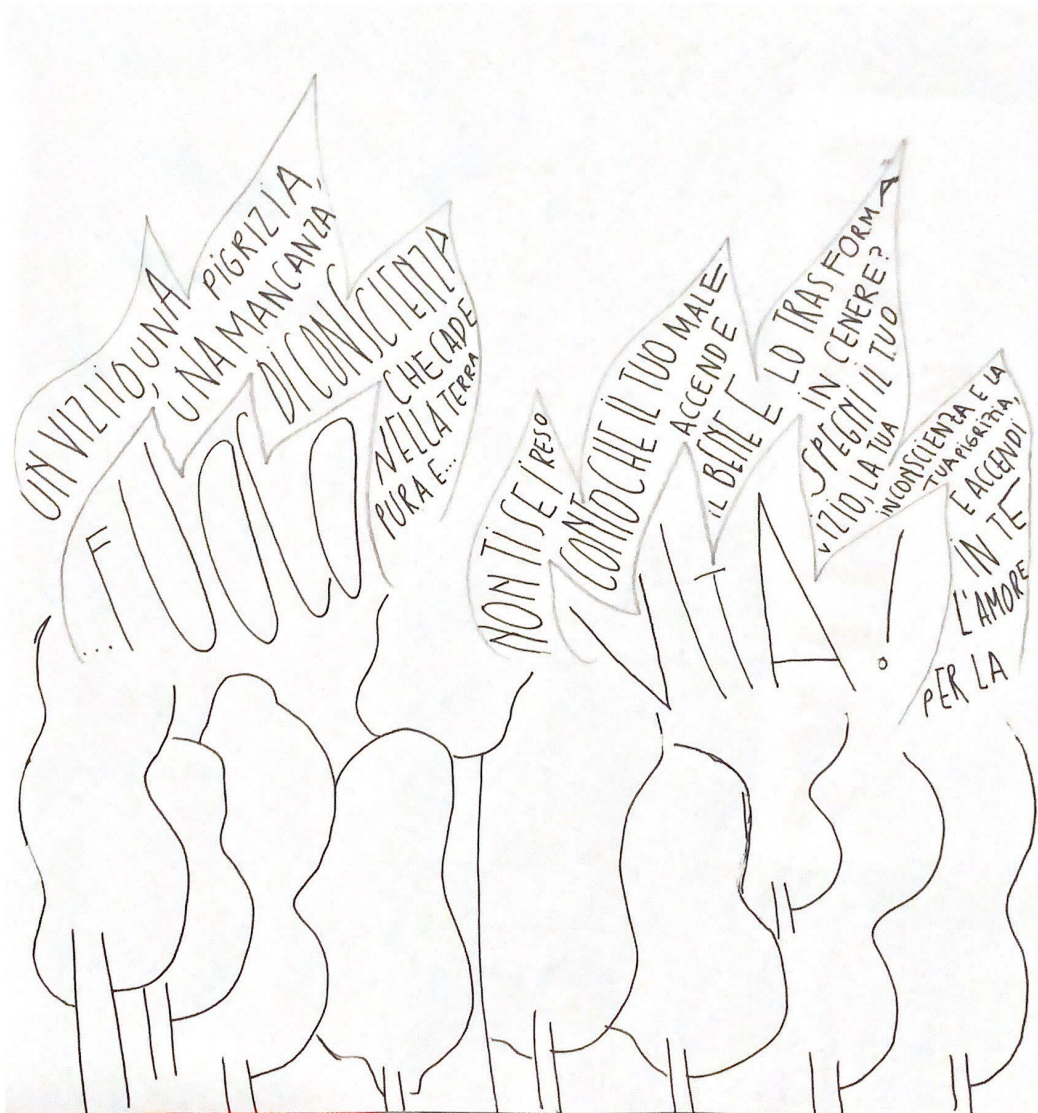 UN VIZIO, UNA
PIGRIZIA,
UNA MANCANZA
DI CONSCIENZA
CHE CADE
NELLA TERRA
PURA E...
...FUOCO
NON TI SEI RESO
CONTO CHE IL TUO MALE
ACCENDE
IL BENE E
LO TRASFORMA
IN CENERE?
SPEGNI IL TUO
VIZIO, LA TUA
INCONSCIENZA E LA
TUA PIGRIZIA,
E ACCENDI
IN TE
L'AMORE
PER LA
VITA!